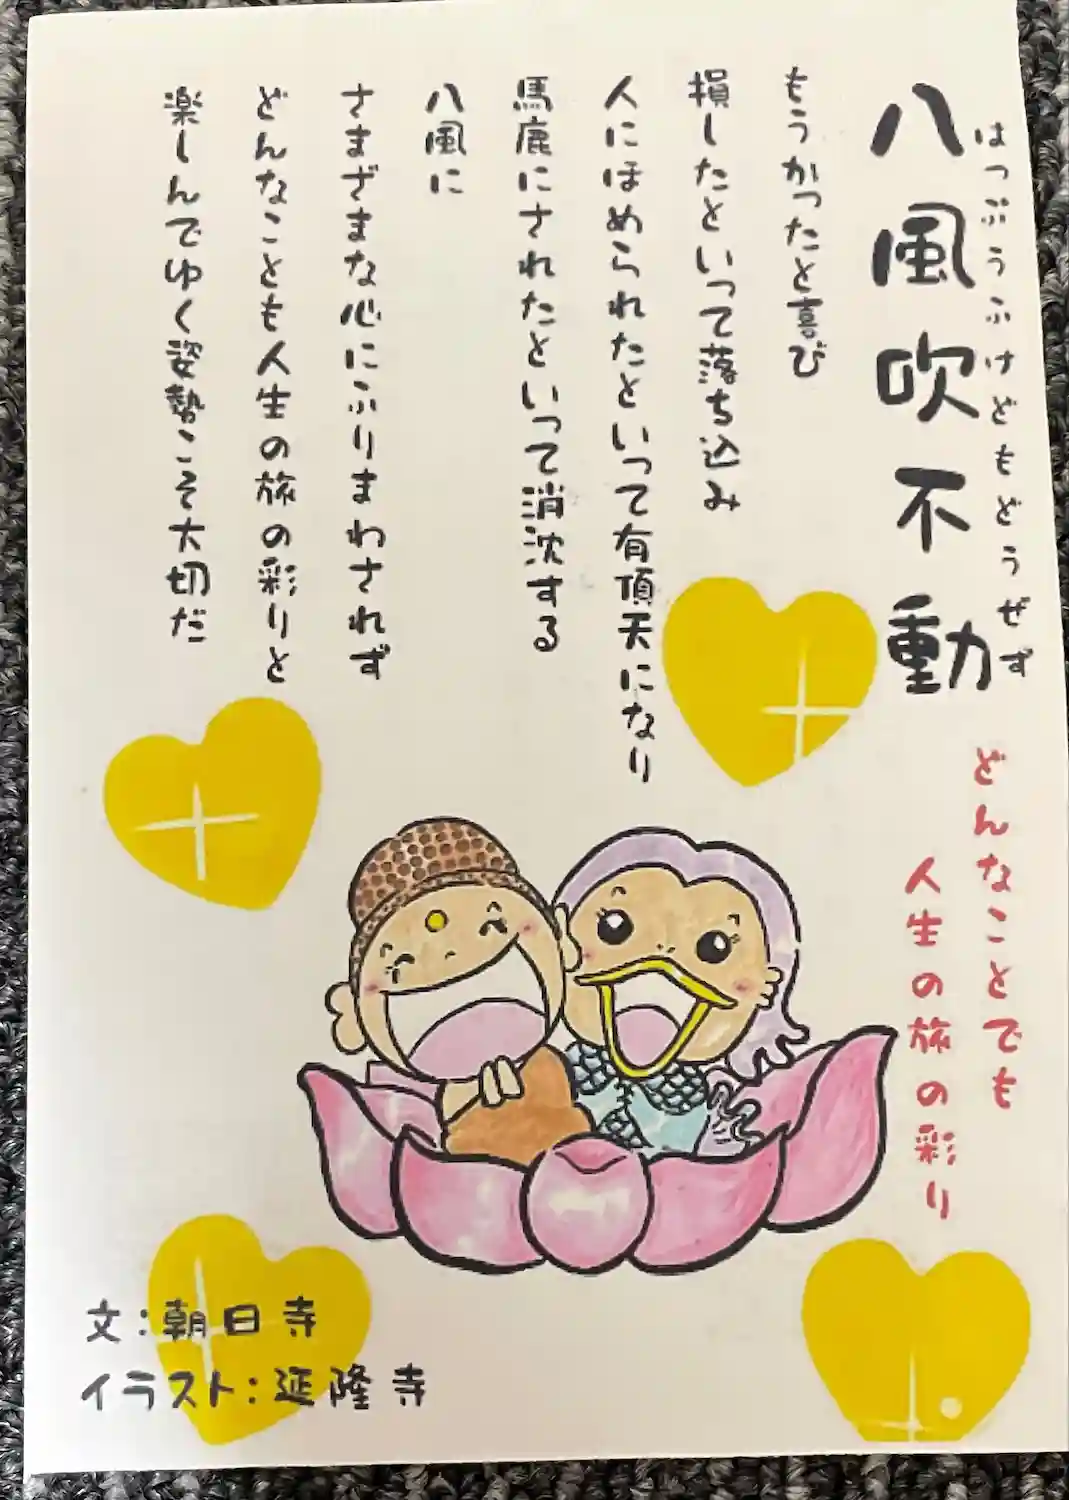 はっぷうふけどもどうぜず
八風吹不動
どんなことでも
人生の旅の彩り
もうかったと喜び
損したといって落ち込み
人にほめられたといって有頂天になり
馬鹿にされたといって消沈する
八風に
さまざまな心にふりまわされず
どんなことも人生の旅の彩りと
楽しんでゆく姿勢こそ大切だ
文:朝日寺
イラスト:延隆寺